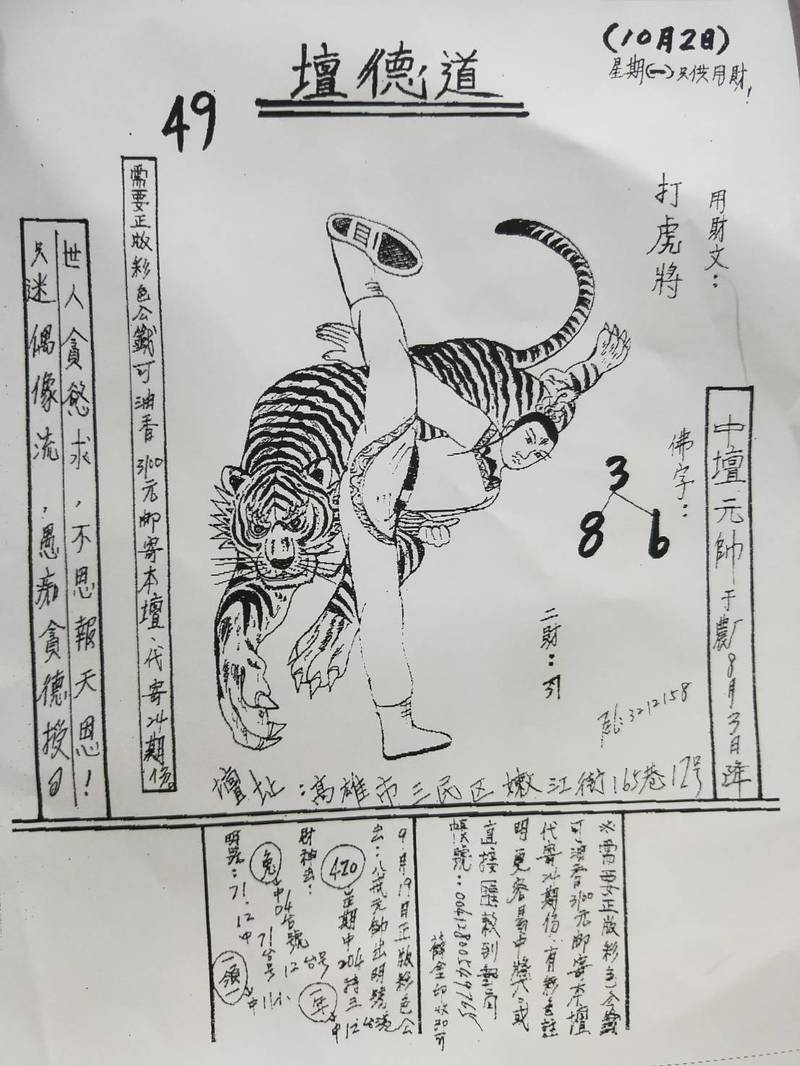 (10月2日)
星期(一)只供用財!
壇德道
49
用財文：
打虎將
佛字：
3
8 6
中壇元帥于農厂8月3日降
二財：引
3212158
需要正版彩色公籤可油香3100元邮寄本壇、代寄24期份。
世人貪慾求，不思報天恩！
只迷偶像流，愚痴貪德授
壇址：高雄市三民区嫩江街165巷12号
※需要正版彩色公籤
可油香3100元邮寄本壇
代寄24期份、有彩色註
明更容易中獎、或
直接匯款到郵局
帳號：
9月19日正版彩色公
出：八戒元帥出明號
420 星期中204特三
財神出：
兔 中04台號12台号
71台号
明點：71.12中